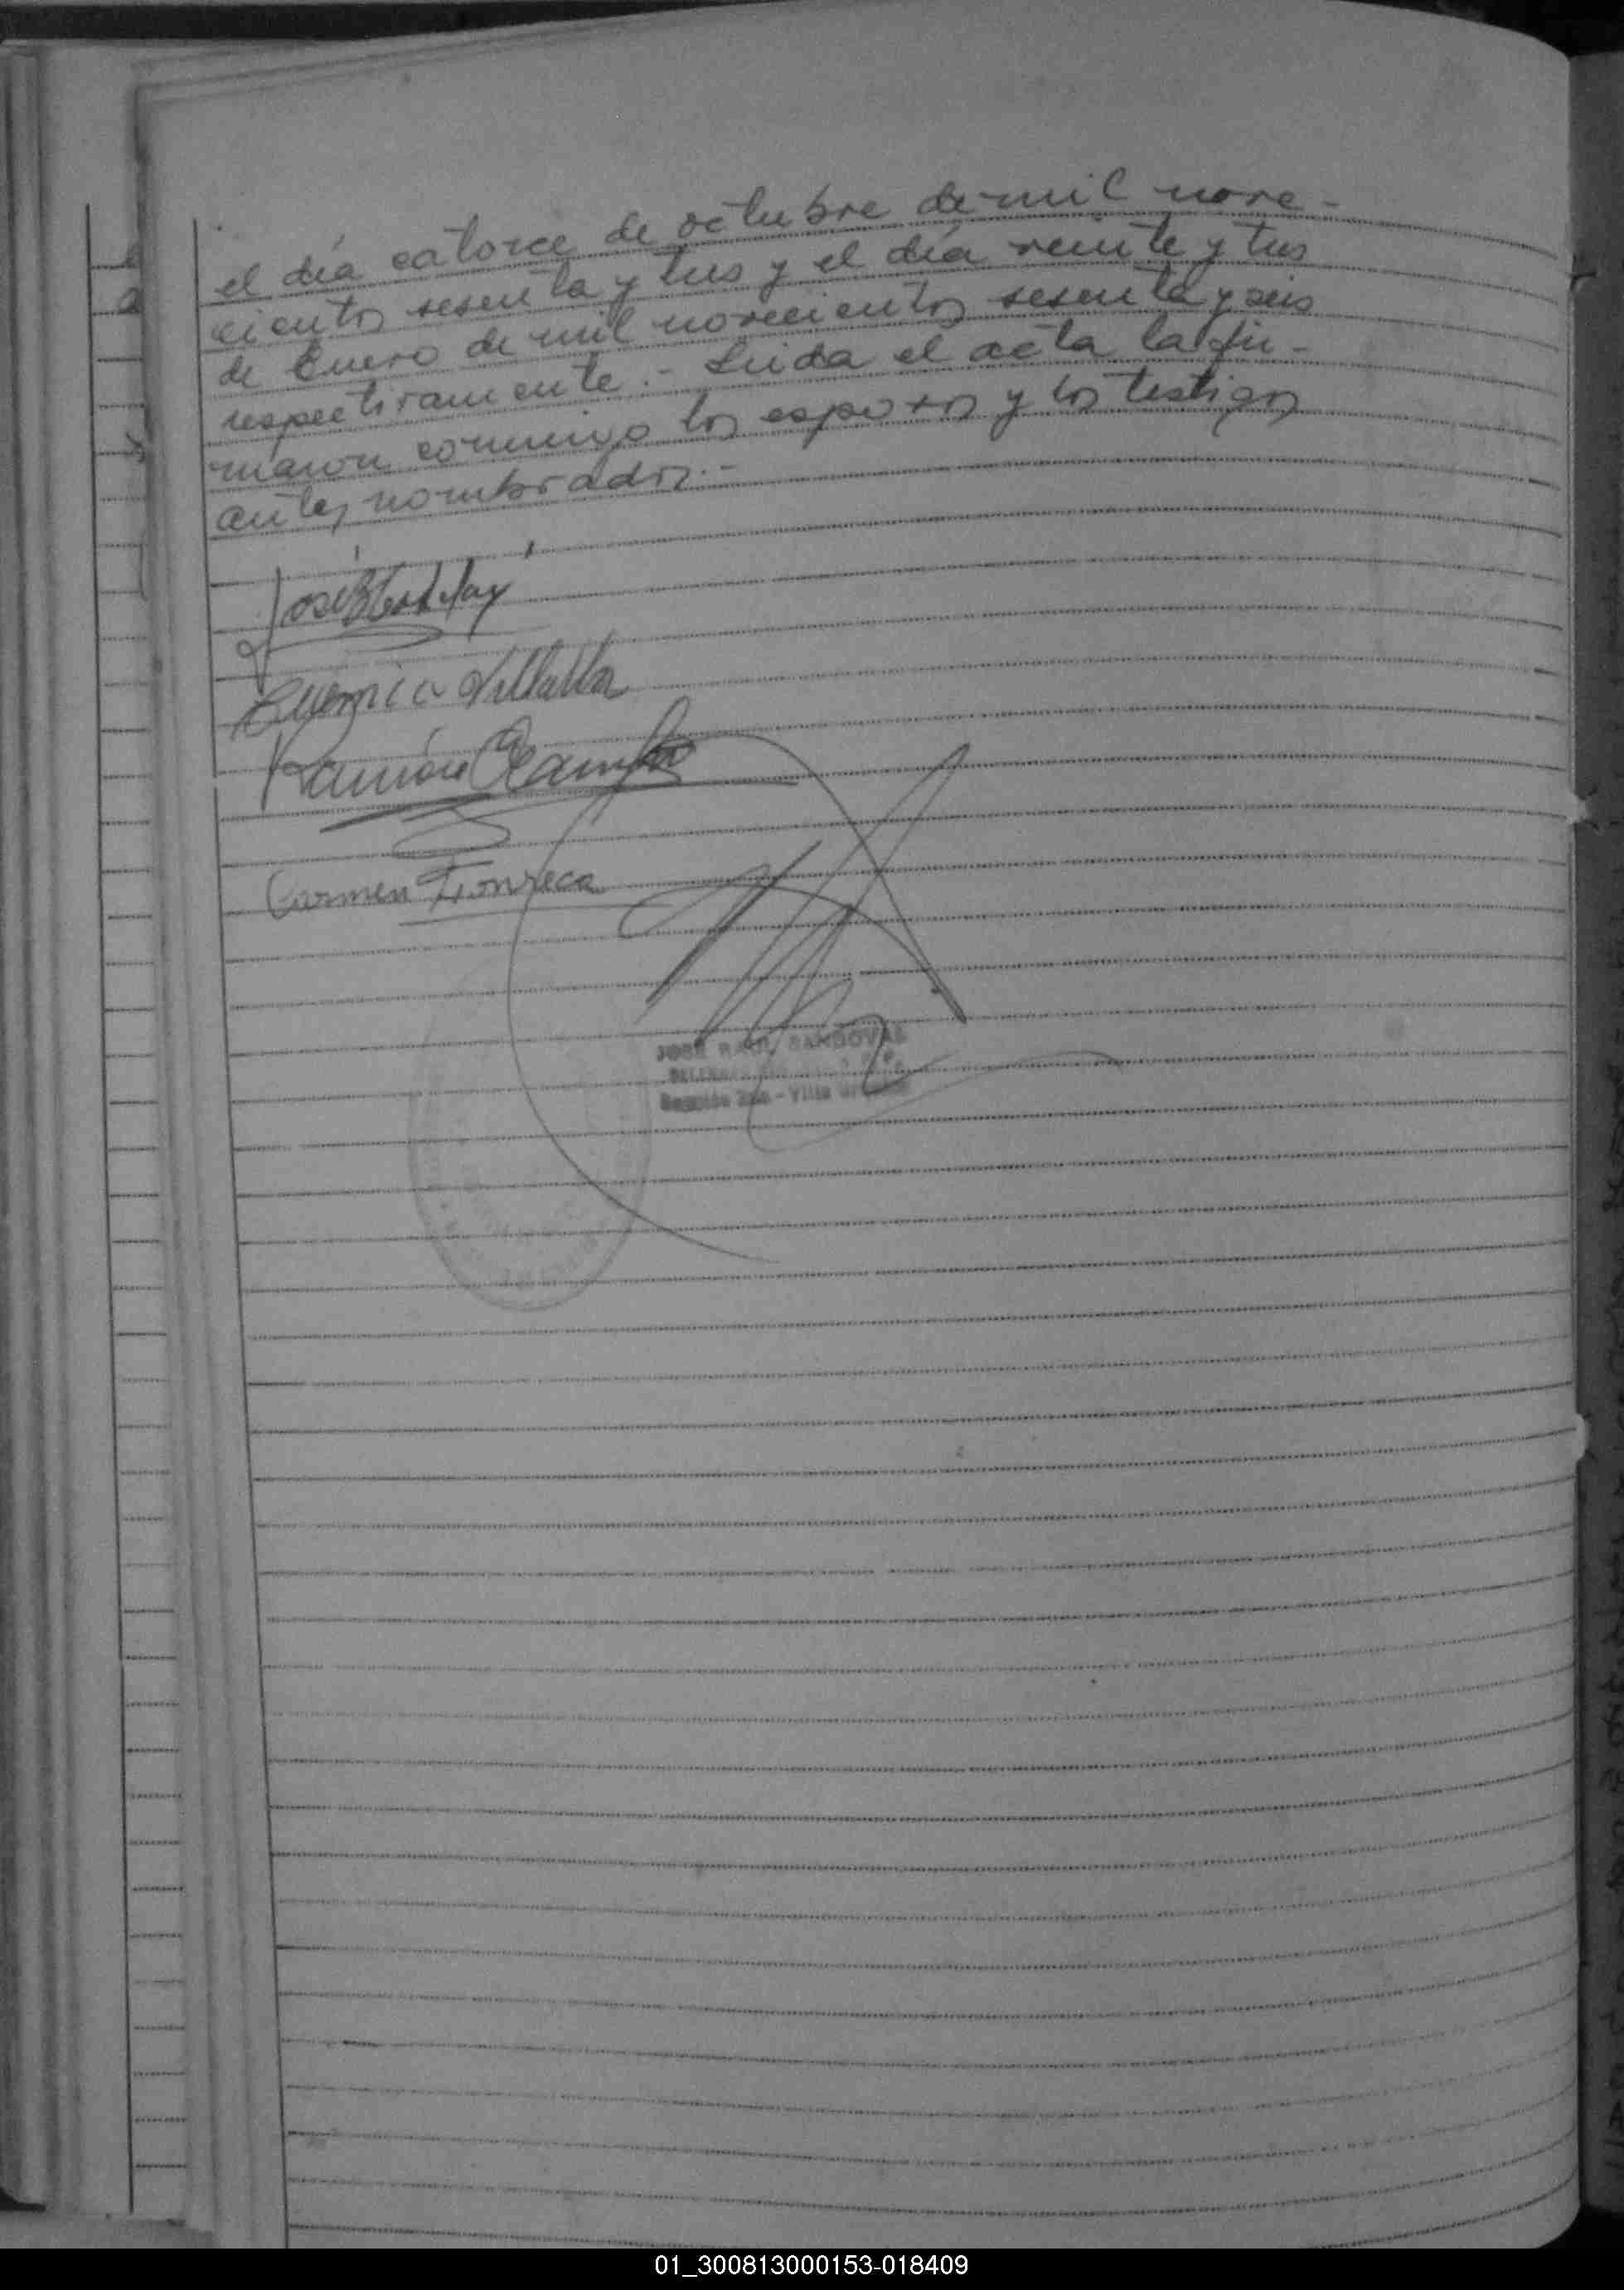 el día catorce de octubre de mil nove-
cientos sesenta y tres y el día veinte y tres
de Enero de mil novecientos sesenta y seis
respectivamente.- Leida el acta la fir-
maron conmigo los esposos y los testigos
antes nombrados.-
José
Eugenia Villalba
Ramón
Carmen Fonseca
JOSE RAUL SANDOVAL
Sección 2da - Villa
01_300813000153-018409